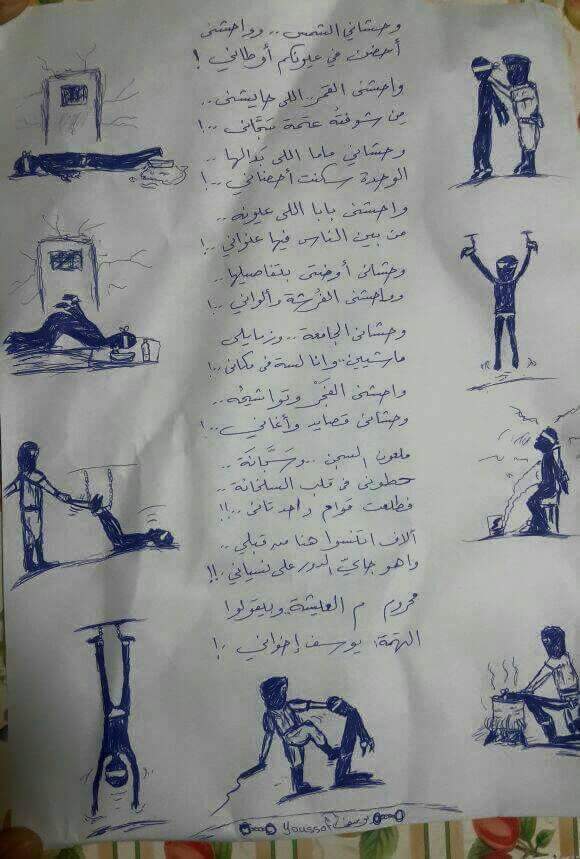 وحشاني الشمس .. وواحشني
أحضن في عليونكم أوطاني !
واحشني القمر اللى حايشني ..
من شوفته عتمة سجّاني ..!
وحشاني ماما اللى بَدالها ..
الوحدة سكنت أحضاني ..!
واحشني بابا اللى عيونه ..
من بين الناس فيها عنواني ..!
وحشاني أوضتي بتفاصيلها ..
وواحشني الفرشة وألواني ..!
وحشاني الجامعة .. وزمايلى
ماشيين .. وانا لسة فى مكانى ..!
واحشني الفجر وتواشيحُه ..
وحشاني قصايد وأغاني ..!
ملعون السجن .. وسجّانة ..
حطونى فى قلب السلخانة ..
فطلعت قوام واحد تانى ..!!
آلاف اتنسوا هنا من قبلي ..
واهو جاي الدور على نسياني ..!!
محروم م العيشة وبيقولوا
التهمة: يوسف إخواني ..!
يوسف Youssof